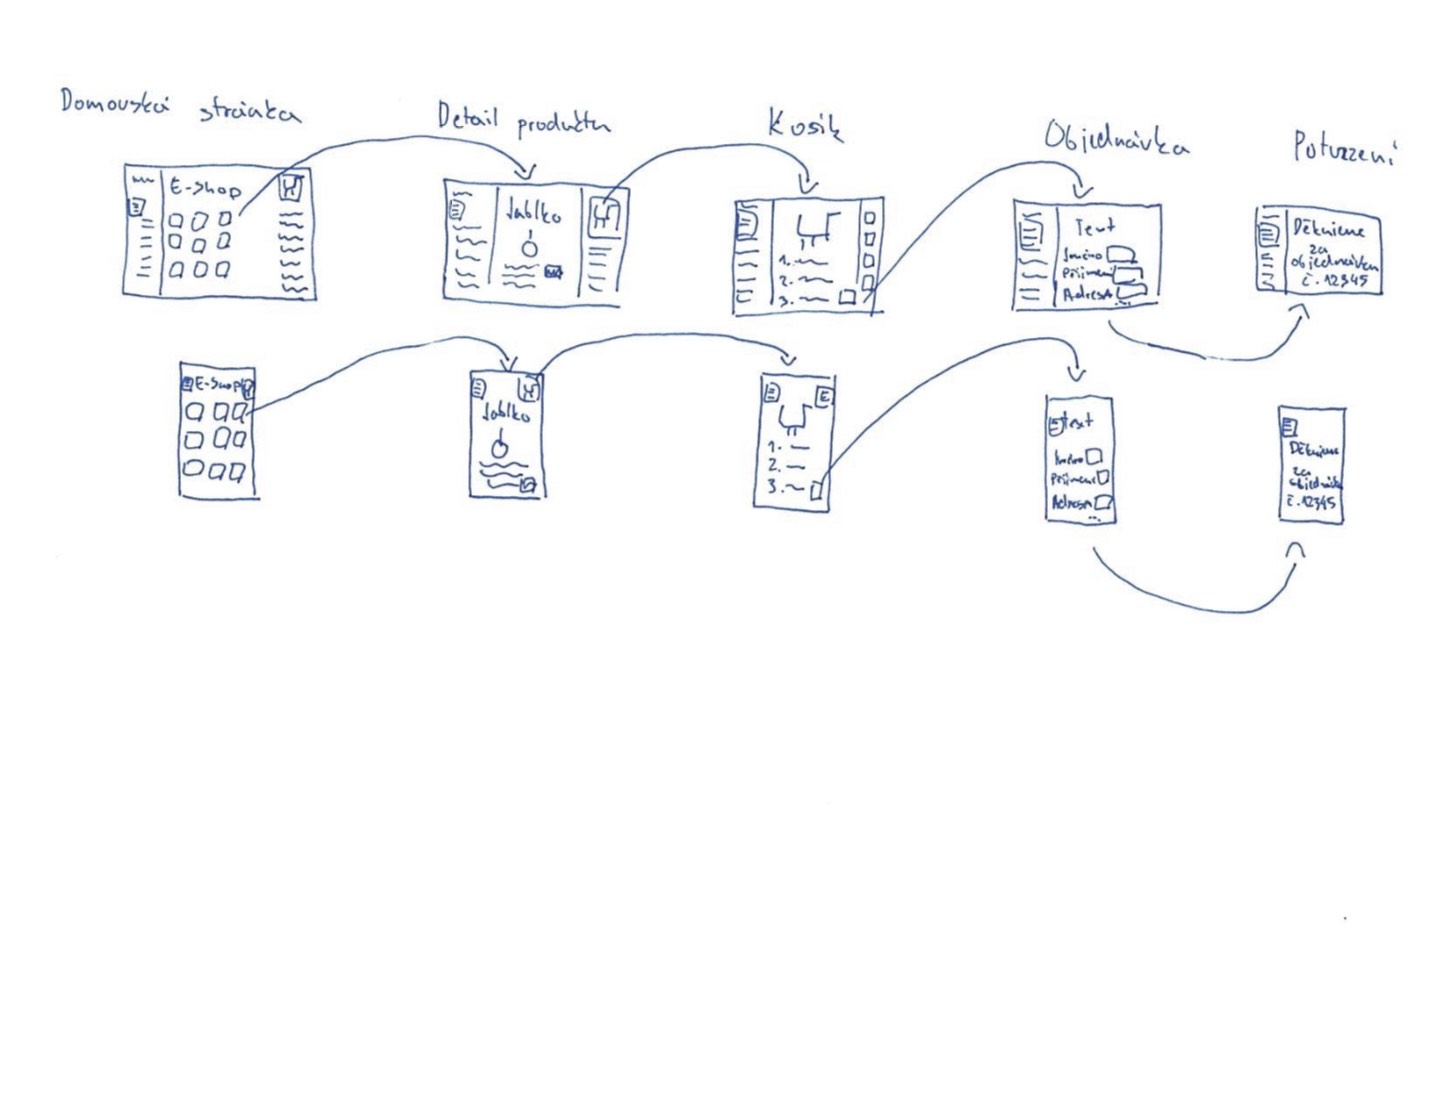 Domovská stránka
Detail produktu
Košík
Objednávka
Potvrzení
E-Shop
Jablko
1.
2.
3.
Text
Jméno
Příjmení
Adresa
...
Děkujeme
za
objednávku
č. 12345
E-Shop
Jablko
E
1.
2.
3.
Text
Jméno
Příjmení
Adresa
...
Děkujeme
za
objednávku
č. 12345